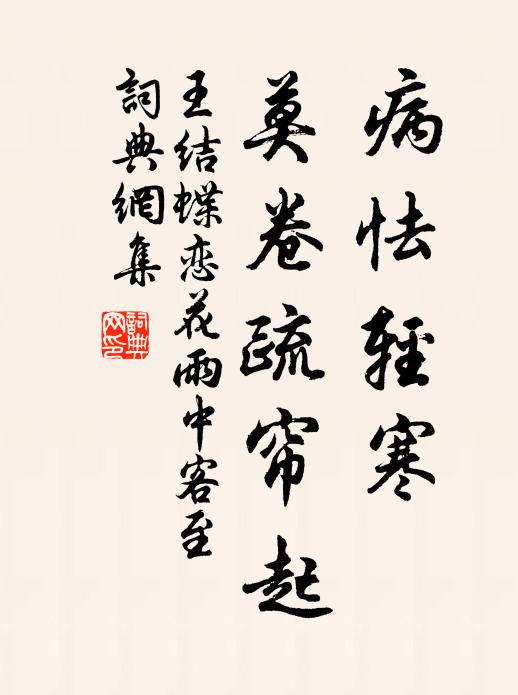 病怯輕寒
莫卷疏帘起
王结蝶恋花雨中客至
詞典網集
詞典网印